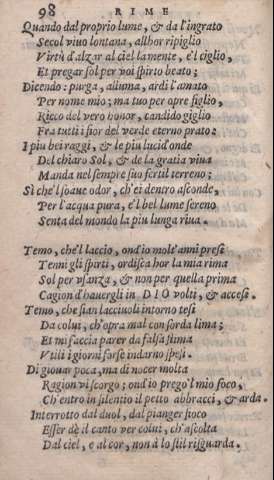 98 RIME
Quando dal proprio lume, & da l'ingrato
Secol viuo lontana, allhor ripiglio
Virtù d'alzar al ciel la mente, e'l ciglio,
Et pregar sol per voi spirto beato;
Dicendo: purga, alluma, ardi l'amato
Per nome mio; ma tuo per opre figlio,
Ricco del vero honor, candido giglio
Fra tutti i fior del verde eterno prato:
I piu bei raggi, & le piu lucid'onde
Del chiaro Sol, & de la gratia viua
Manda nel sempre suo fertil terreno;
Sì che'l soaue odor, ch'ei dentro asconde,
Per l'acqua pura, e'l bel lume sereno
Senta del mondo la piu lunga riua.
Temo, che'l laccio, ond'io molt'anni presi
Tenni gli spirti, ordisca hor la mia rima
Sol per vsanza, & non per quella prima
Cagion d'hauergli in DIO volti, & accesi.
Temo, che sian lacciuoli intorno tesi
Da colui, ch'opra mal con sorda lima;
Et mi faccia parer da falsa stima
Vtili i giorni forse indarno spesi.
Di giouar poca, ma di nocer molta
Ragion vi scorgo; ond'io prego'l mio foco,
Ch'entro in silentio il petto abbracci, & arda.
Interrotto dal duol, dal pianger fioco
Esser dè il canto ver colui, ch'ascolta
Dal ciel, e al cor, non à lo stil risguarda.